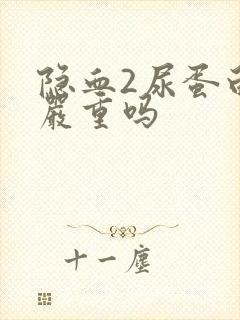 隐血2尿蛋白
严重吗
十一尘